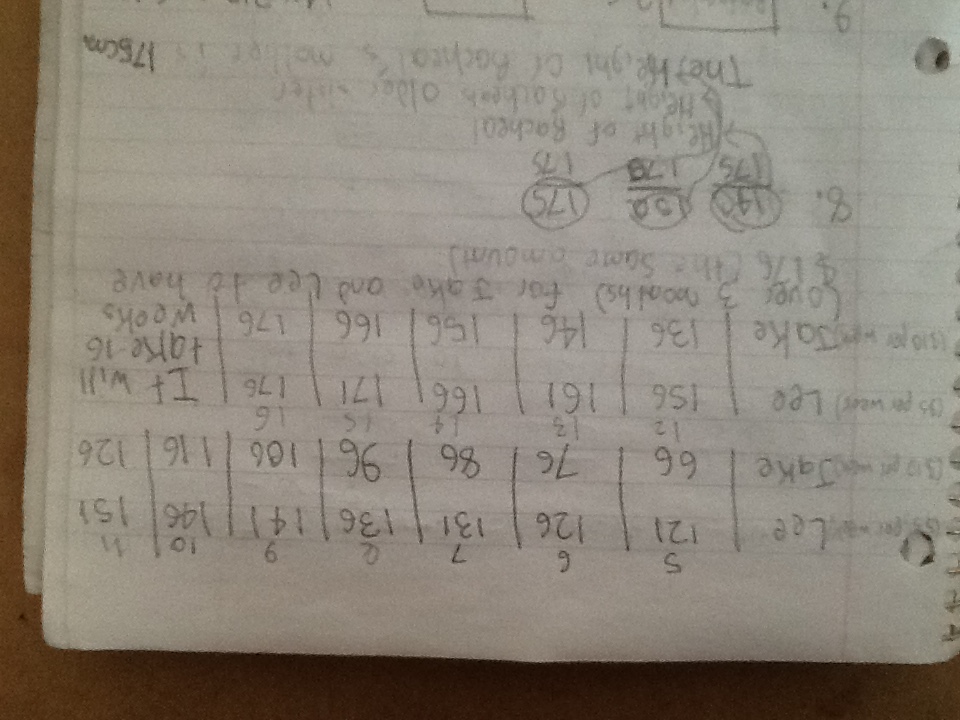 5 6 7 8 9 10 11
($5 per week) Lee | 121 | 126 | 131 | 136 | 141 | 146 | 151
($10 per week) Jake | 66 | 76 | 86 | 96 | 106 | 116 | 126
12 13 14 15 16
($5 per week) Lee | 156 | 161 | 166 | 171 | 176 | It will
take 16
($10 per week) Jake | 136 | 146 | 156 | 166 | 176 | weeks
(over 3 months) for Jake and Lee to have
$176 (the same amount)
8. 140/175 175/175
Height of Racheal
Height of Racheals older sister
The Height of Racheal's mother is 175cm
9.